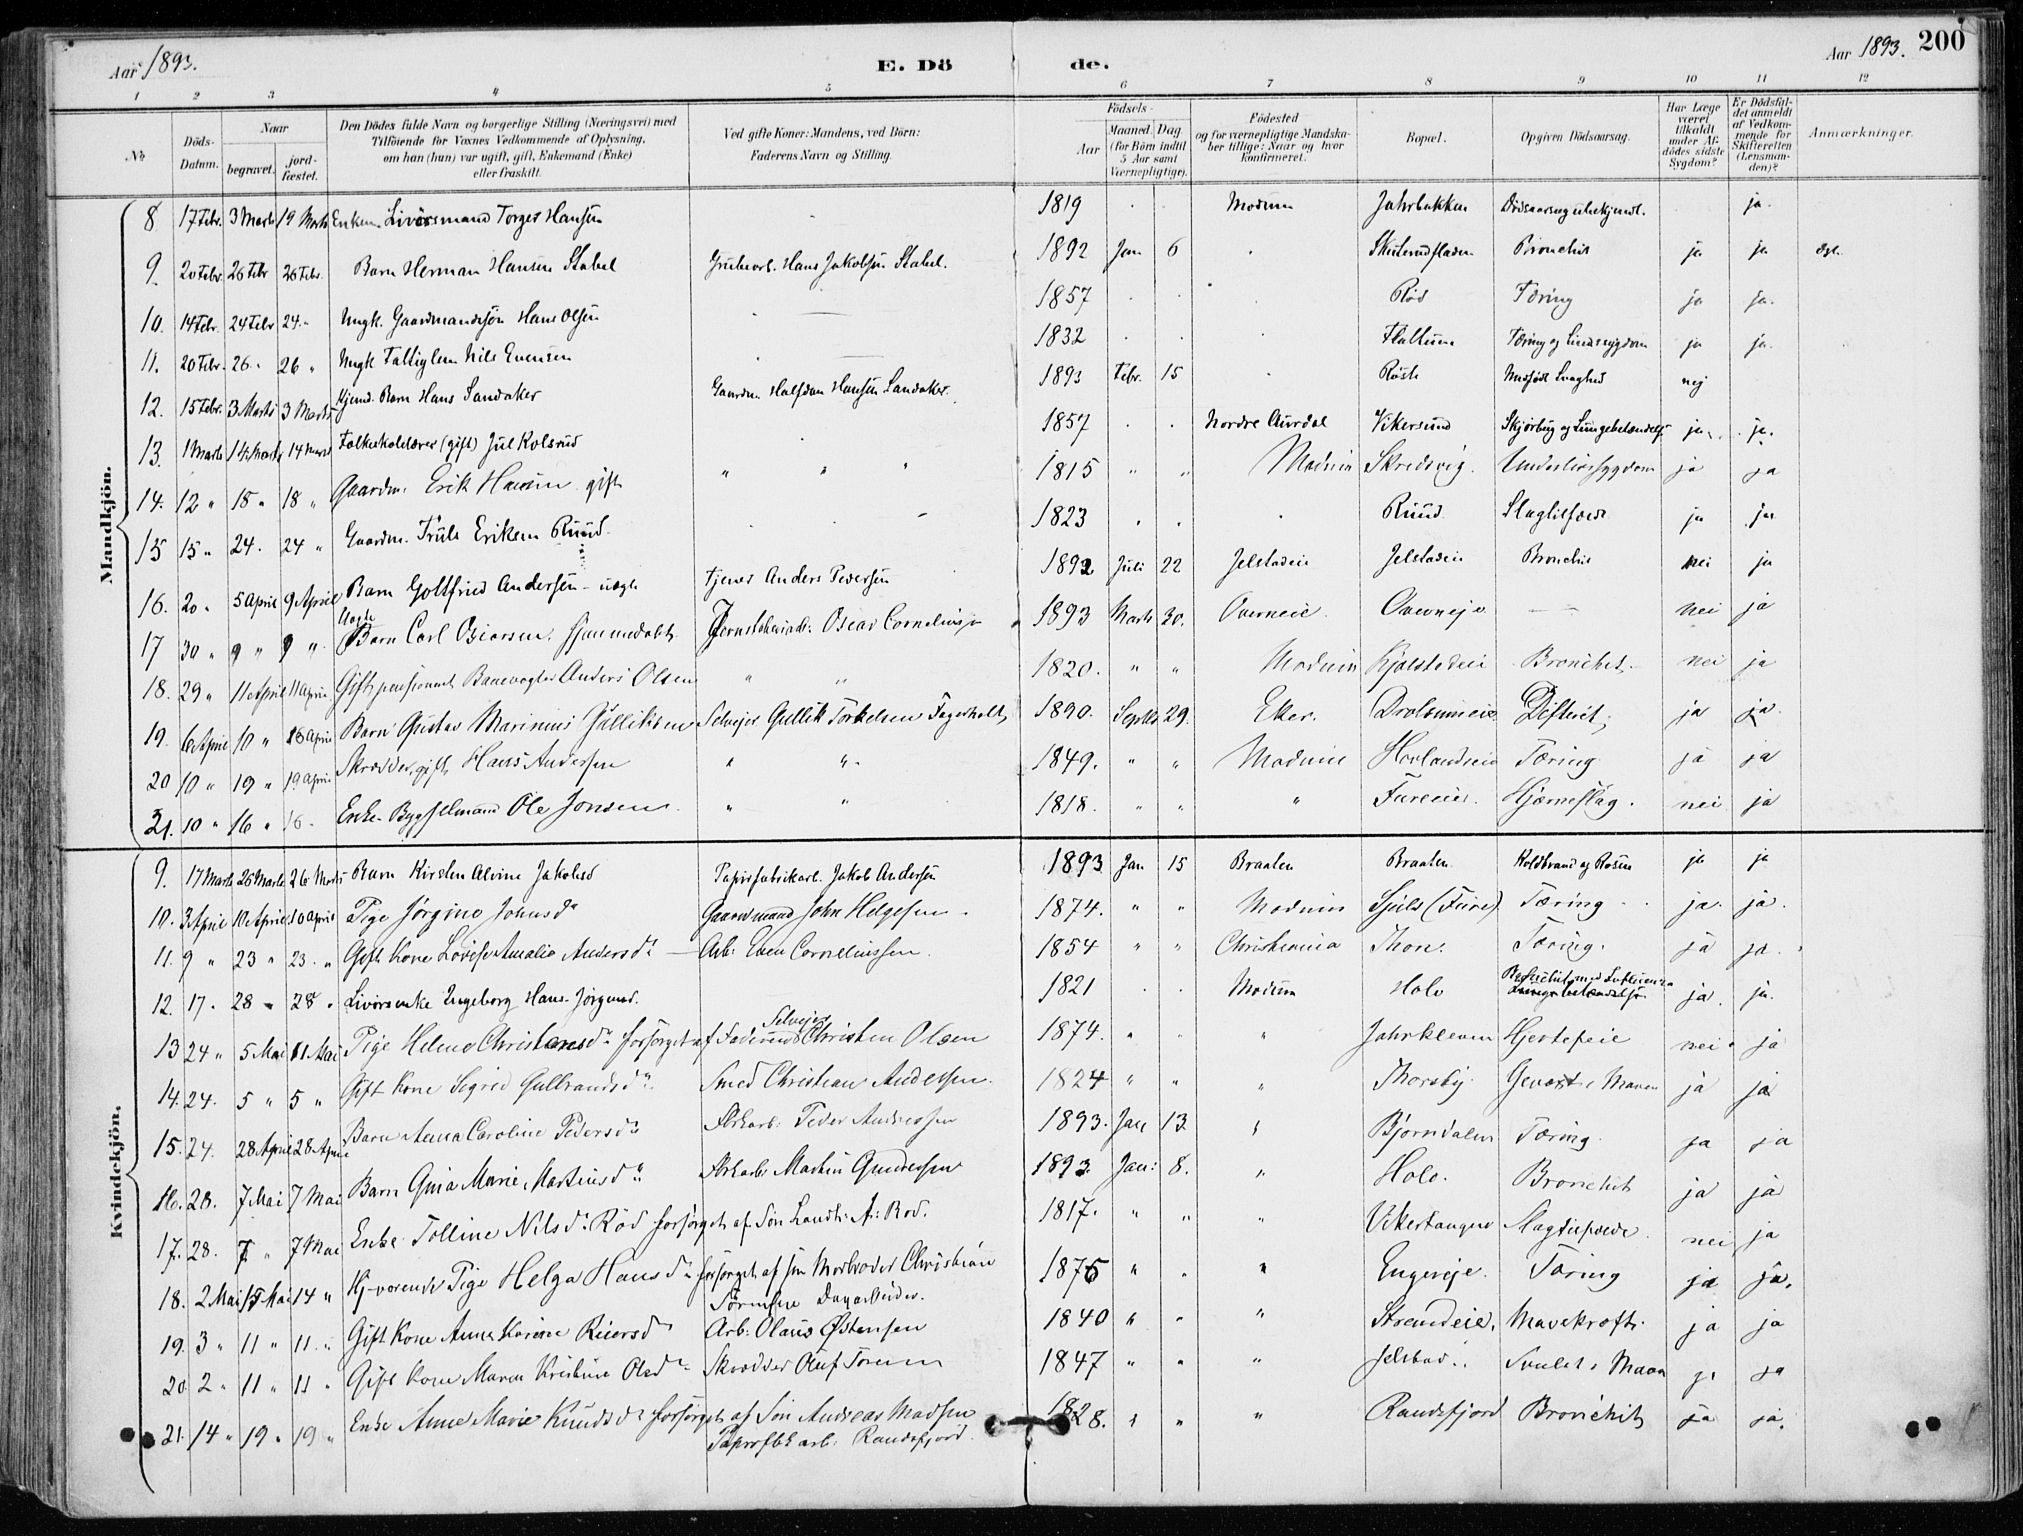 Aar 1893. E. Dö de. Aar 1893. 200
1 2 3 4 5 6 7 8 9 10 11 12
No Döds-Datum. Naar begravet. jordfæstet. Den Dödes fulde Navn og borgerlige Stilling (Næringsvei) med Tilföiende for Voxnes Vedkommende af Oplysning, om han (hun) var ugift, gift, Enkemand (Enke) eller fraskilt. Ved gifte Koner: Mandens, ved Börn: Faderens Navn og Stilling. Födsels- Aar Maaned. Dag (for Börn indtil 5 Aar samt Værnepligtige). Födested og for værnepligtige Mandskaber tillige: Naar og hvor konfirmeret. Bopæl. Opgiven Dödsaarsag. Har Læge været tilkaldt under Afdödes sidste Sygdom? Er Dödsfaldet anmeldt af Vedkommende for Skifteretten (Lensmanden)? Anmærkninger.
Mandkjön.
8 17 Febr. 3 Marts 19 Marts Enkem. Livörsmand Torger Hansen 1819 Modum Jahrbakken Dödsaarsag ubekjendt. ja.
9. 20 Febr. 26 Febr 26 Febr. Barn Herman Hansen Stabel Grubearb. Hans Jakobsen Stabel. 1892 Jan 6 Skuterudfladen Bronchit ja ja
10. 14 Febr. 24 Febr 24 " Ungk. Gaardmandssön Hans Olsen 1857 Röd Tæring ja ja.
11. 20 Febr. 26 " 26 " Ungk Fattiglem Nils Evensen 1832 Flattum Tæring og Sindssygdom ja ja.
12. 15 Febr. 3 Marts 3 Marts Hjemd. Barn Hans Sandaker Gaardm. Halfdan Hansen Sandaker. 1893 Febr. 15 Medfödt Svaghed nej
13. 1 Marts 14 Marts 14 Marts Folkeskolelærer (gift) Jul Kolsrud 1857 Nordre Aurdal Vikersund Skjörbug og Lungebetændelse ja. ja.
14. 12 " 18 " 18 " Gaardm. Erik Hansen gift " " " 1815 " " Modum Skredsvig. Underlivssygdom ja ja
15 15 " 24. 24 " Gaardm. Truls Eriksen Ruud. 1823 Ruud Slagtilfælde ja ja
16. 20 " 5 April 9 April Barn Gottfried Andersen - uægte Tjener Anders Pedersen 1892 Juli 22 Jelstadeie Jelstadeie Bronchit nei ja
17 30 " 9 " 9 " Uægte Barn Carl Oscarsen, hjemmedöbt. Jernstöber Oscar Corneliussen 1893 Marts 30. Overneie. Overneje — nei ja
18. 29 " 11 April 11 April Gift pensioneret Banevogter Anders Olsen " " 1820. " " Modum Kjölstadeie Bronchit. nei ja
19. 6 April 10 " 18 April Barn Gustav Marinius Gulliksen Selvejer Gullik Torkelsen Fagerholt 1890. Septbr 29. Eker. Drolsumeie Difterit, ja ja.
20 10 " 19 " 19 April Skrædder, gift, Hans Andersen " " 1849. " " Modum Hovlandseie Tæring ja ja
21. 10 " 16 " 16 - Enkem. Bygselmand Ole Jonsen. " " 1818. " " " Fureeier. Hjerneslag. nei ja
Kvindekjön.
9. 17 Marts 26 Marts 26 Marts Barn Kirsten Alvine Jakobsd Papirfabrikarb. Jakob Andersen 1893 Jan 15 Braaten Braaten Koldbrand og Rosen ja ja
10. 3 April 10 April 10 April Pige Jörgine Johnsdr Gaardmand John Helgesen. 1874. " " Modum Sjuls (Fure). Tæring ja. ja.
11. 9 " 23 " 23. " Gift Kone Lovise Amalie Andersdr — Arb: Even Corneliussen. 1854 " " Christiania Thon. Tæring. ja ja.
12. 17. 28 " 28 " Livörsenke Ingeborg Hans-Jörgensd. 1821 Modum Holo Bronchit med Influenza ja. ja.
13 24 " 5 Mai 11 Mai Pige Helene Christensdr forsörget af Faderens Selvejer Christen Olsen 1874. " " Jahrkleven Hjertefeil nei ja
14. 24. 5 " 5 " Gift Kone Sigrid Gulbrandsdr. Smed Christian Andersen. 1824 " " " Thorsby. Gevext i Maven ja ja
15. 24. 28 April 28 April Barn Anna Caroline Pedersdr Peder Andersen 1893. Jan 13. " Björndalen Tæring. ja ja
16. 28. 7 Mai 7 Mai Barn Gina Marie Martinsdr Martin Gundersen 1893. Jan: 8. " Holo. Bronchit ja ja
17. 28. 7 " 7 Mai Enke Tolline Nilsdr Röd forsörget af Sön Landh: A: Röd. 1817. " " " Vikertangen Slagtilfælde. nei ja
18. 2 Mai 15 Mai 14 " Pige Helga Hansdr forsörget af sin Morbroder Christian Sörensen Dagarbeider. 1875 " " " Engereje. Tæring ja ja.
19. 3 " 11 " 11. " Gift Kone Anne Karine Reiersdr Arb: Olaus Östensen 1840 " " " Strandeie. Mavekræft. ja ja
20. 2 " 11 " 11 " Gift Kone Maren Kristine Olsdr Skrædder Oluf 1847 " " " Jelstad. ja ja
21. 14 " 19 " 19 " Enke Anne Marie Knudsdr forsörget af Sön Andreas Madsen Papirfbk arb: Randsfjord. 1828. " " " Randsfjord Bronchit ja ja.